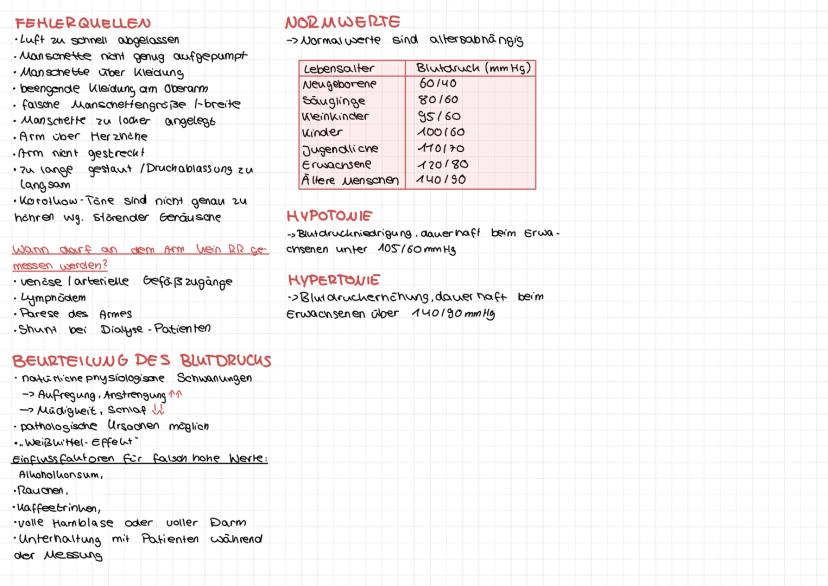 FEHLERQUELLEN
• Luft zu schnell abgelassen
• Manschette nicht genug aufgepumpt
• Manschette über Kleidung
• beengende Kleidung am Oberarm
• falsche Manschettengröße /-breite
• Manschette zu locker angelegt
• Arm über Herzhöhe
• Arm nicht gestreckt
• zu lange gestaut / Druckablassung zu
langsam
• Korotkow-Töne sind nicht genau zu
höhren wg. störender Geräusche
Wann darf an dem Arm kein RR ge-
messen werden?
• venöse / arterielle Gefäßzugänge
• Lymphödem
• Parese des Armes
• Shunt bei Dialyse-Patienten
BEURTEILUNG DES BLUTDRUCKS
• natürliche physiologische Schwankungen
-> Aufregung, Anstrengung ↑↑
-> Müdigkeit, Schlaf ↓↓
• pathologische Ursachen möglich
• „Weißkittel-Effekt"
Einflussfaktoren für falsch hohe Werte:
Alkoholkonsum,
• Rauchen,
• Kaffeetrinken,
• volle Harnblase oder voller Darm
• Unterhaltung mit Patienten während
der Messung
NORMWERTE
-> Normalwerte sind altersabhängig
Lebensalter Blutdruck (mmHg)
Neugeborene 60/40
Säuglinge 80/60
Kleinkinder 95/60
Kinder 100/60
Jugendliche 110/70
Erwachsene 120/80
Ältere Menschen 140/90
HYPOTONIE
-> Blutdruckniedrigung, dauerhaft beim Erwa-
chsenen unter 105/60 mmHg
HYPERTONIE
-> Blutdruckerhöhung, dauerhaft beim
Erwachsenen über 140/90 mmHg